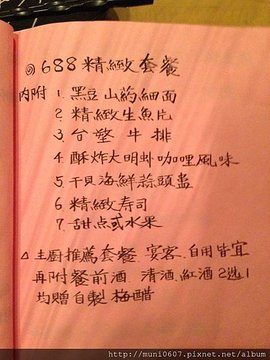 ◎688精緻套餐
內附 1. 黑豆山葯細面
2. 精緻生魚片
3. 台塑牛排
4. 酥炸大明虾咖哩風味
5. 干貝海鮮蒜頭盅
6 精緻寿司
7. 甜点或水果
△ 主厨推薦套餐 宴客.自用皆宜
再附餐前酒 清酒.紅酒2选1
均赠自製梅醋
http://muni0607.pixnet.net/album